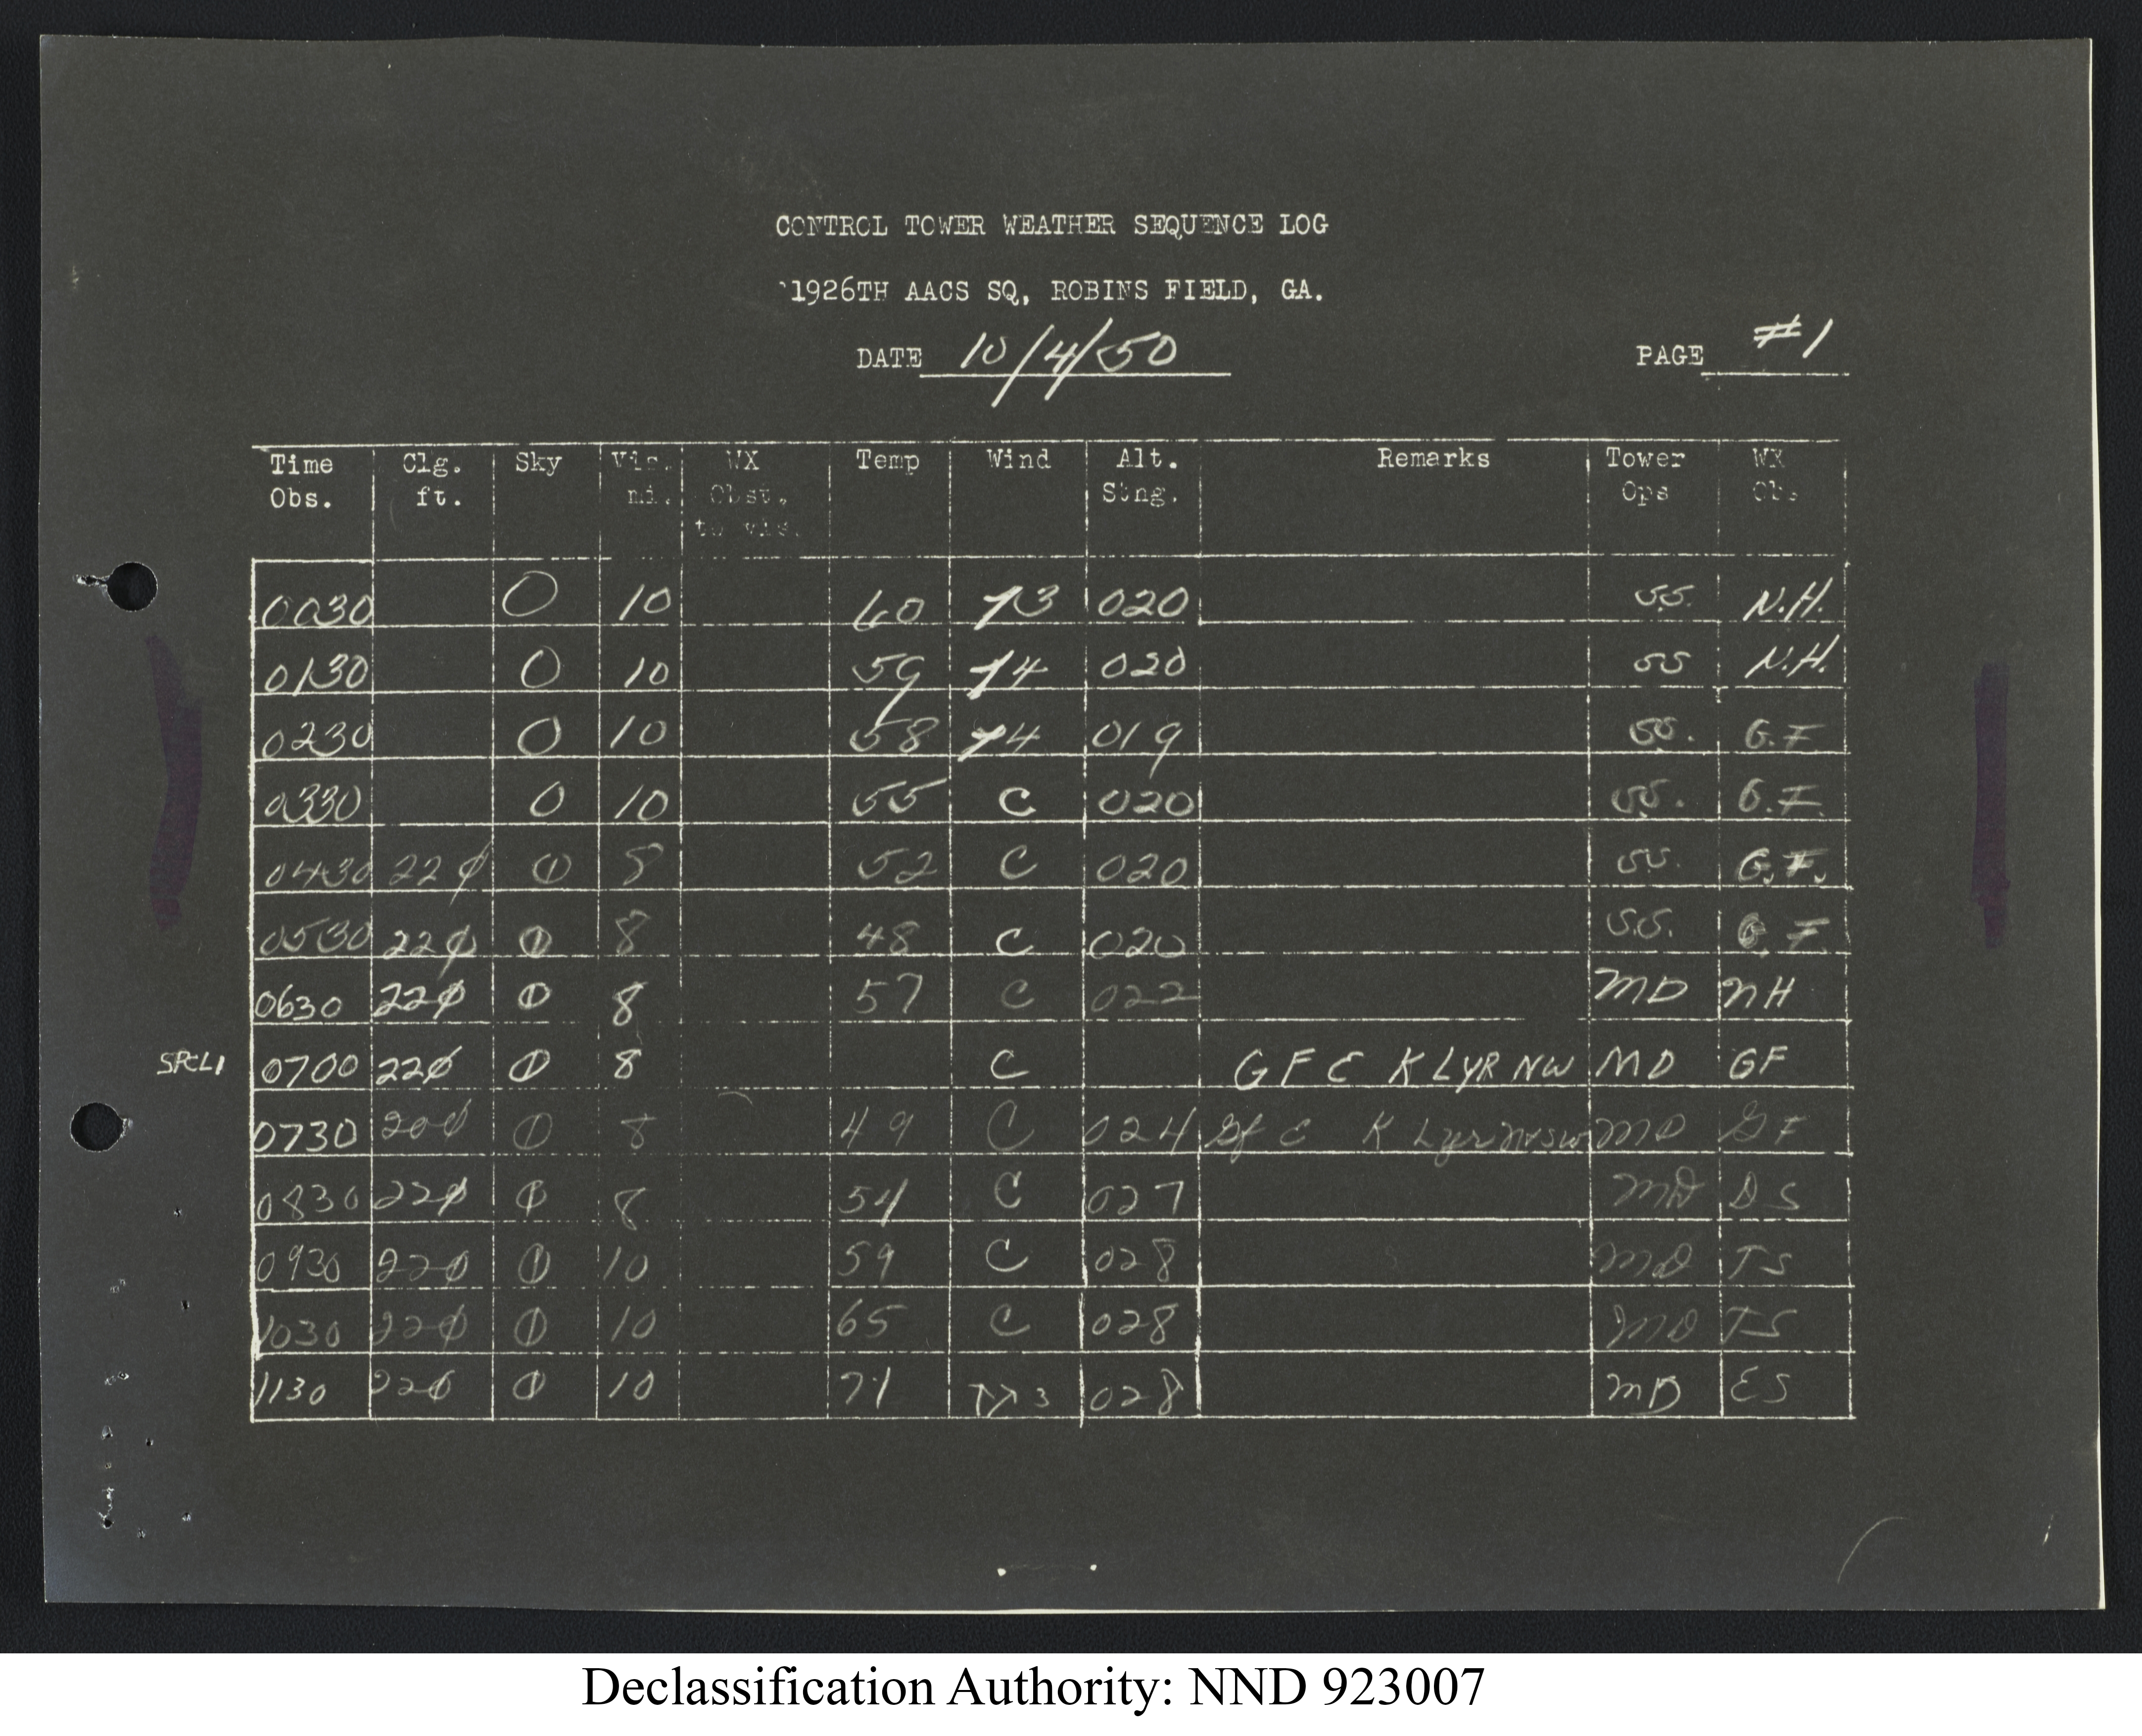 CONTROL TOWER WEATHER SEQUENCE LOG
1926TH AACS SQ, ROBINS FIELD, GA.
DATE 10/4/50 PAGE #1
Time Clg. Sky Vis. WX Temp Wind Alt. Remarks Tower WX
Obs. ft. mi. Obst. Stng. Ops Obs
to vis.
0030 O 10 60 3 020 S.S. N.H.
0130 O 10 59 4 020 SS N.H.
0230 O 10 58 4 019 SS. G.F
0330 O 10 55 C 020 S.S. G.F.
0430 22ϕ ⦶ 8 52 C 020 SS. G.F.
0530 22ϕ ⦶ 8 48 C 020 S.S. G.F.
0630 22ϕ ⦶ 8 57 C 022 MD NH
SPCL1 0700 22ϕ ⦶ 8 C G F E K LYR NW MD GF
0730 20ϕ ⦶ 8 49 C 024 Gf E K Lyr MD GF
0830 22ϕ ⦶ 8 54 C 027 MD DS
0930 22ϕ ⦶ 10 59 C 028 MD TS
1030 22ϕ ⦶ 10 65 C 028 MD TS
1130 22ϕ ⦶ 10 71 ↑↗3 028 MD ES
Declassification Authority: NND 923007